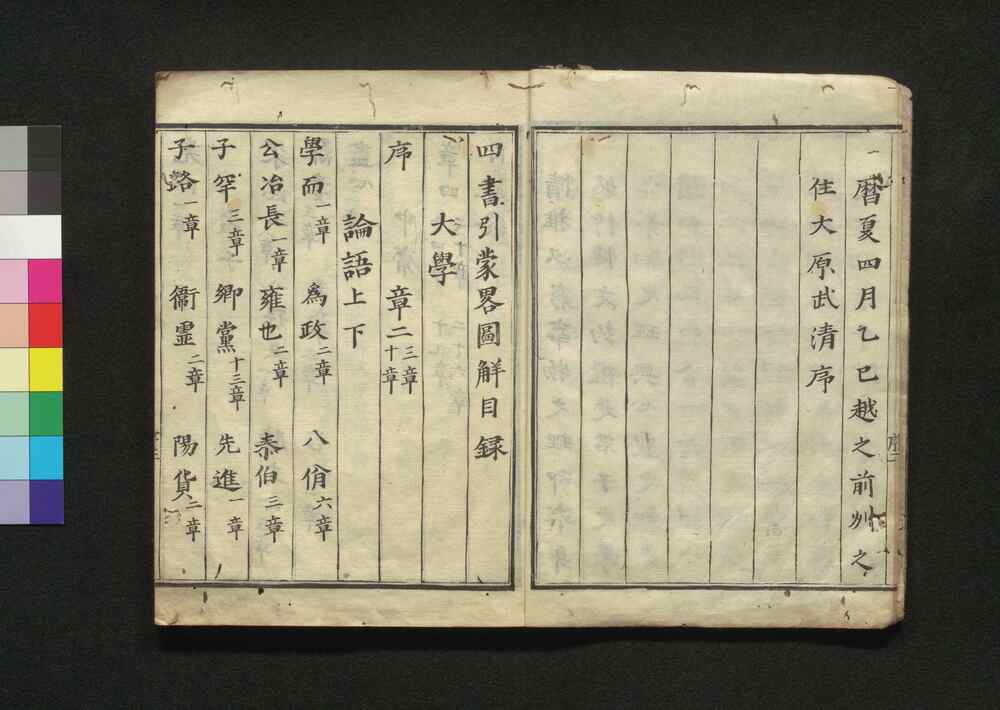 暦夏四月乙巳越之前州之
住大原武清序
四書引蒙畧圖解目録
大學
序 章二十三章十章
論語上下
學而一章 為政二章 八佾六章
公冶長一章 雍也二章 泰伯三章
子罕三章 鄉黨十三章 先進一章
子路一章 衞霊二章 陽貨二章